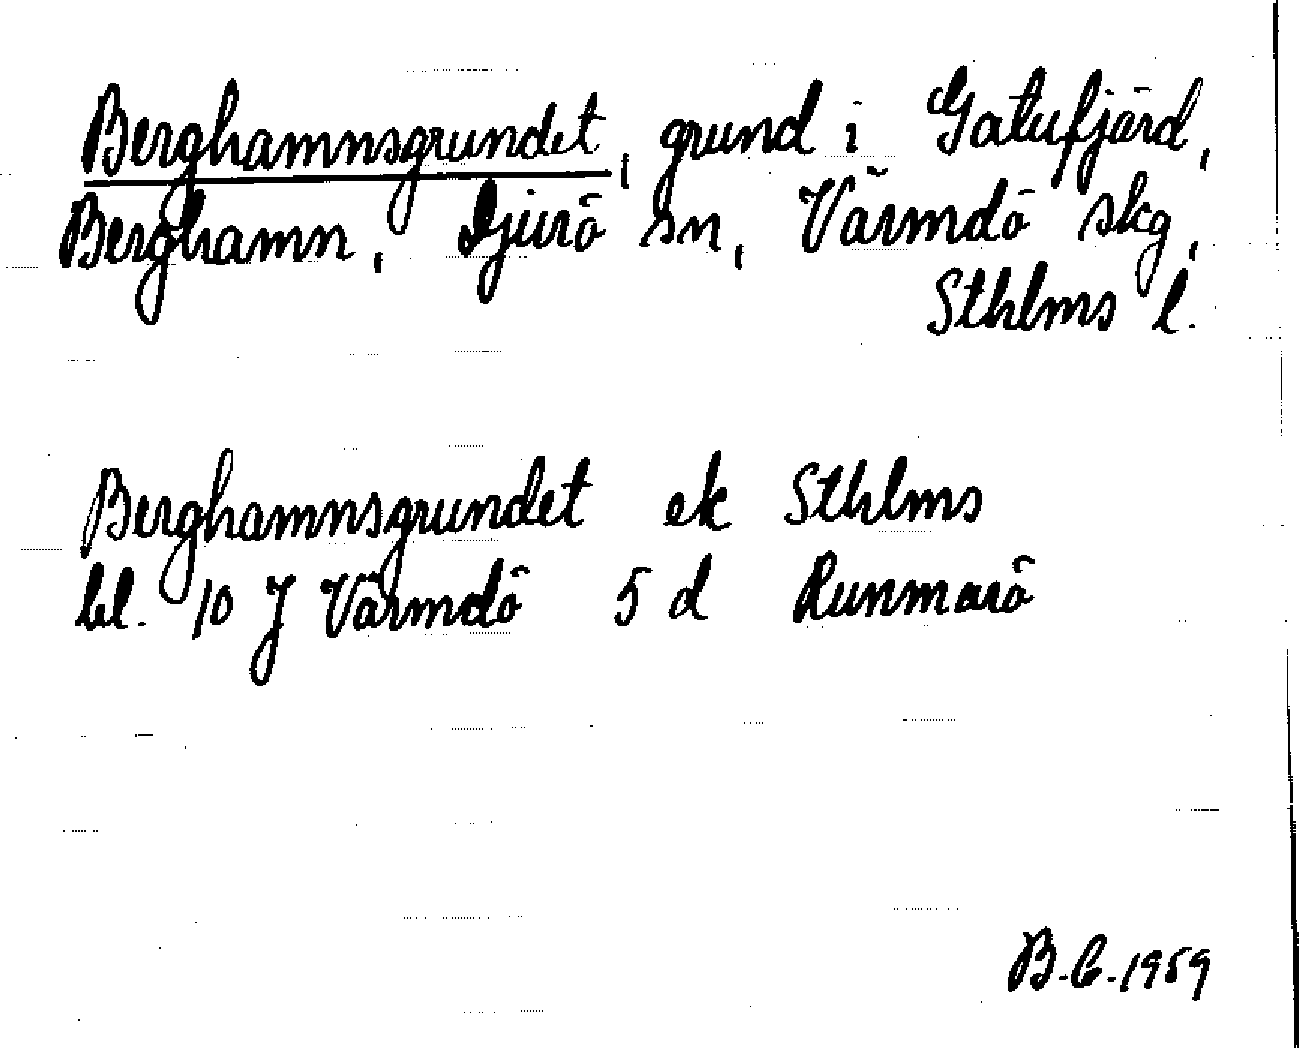 Berghamnsgrundet, grund i Gatufjärd,
Berghamn, Djurö sn, Värmdö skg,
Sthlms l.
Berghamnsgrundet ek Sthlms
bl. 10 J Värmdö 5 d Runmarö
B.C. 1959